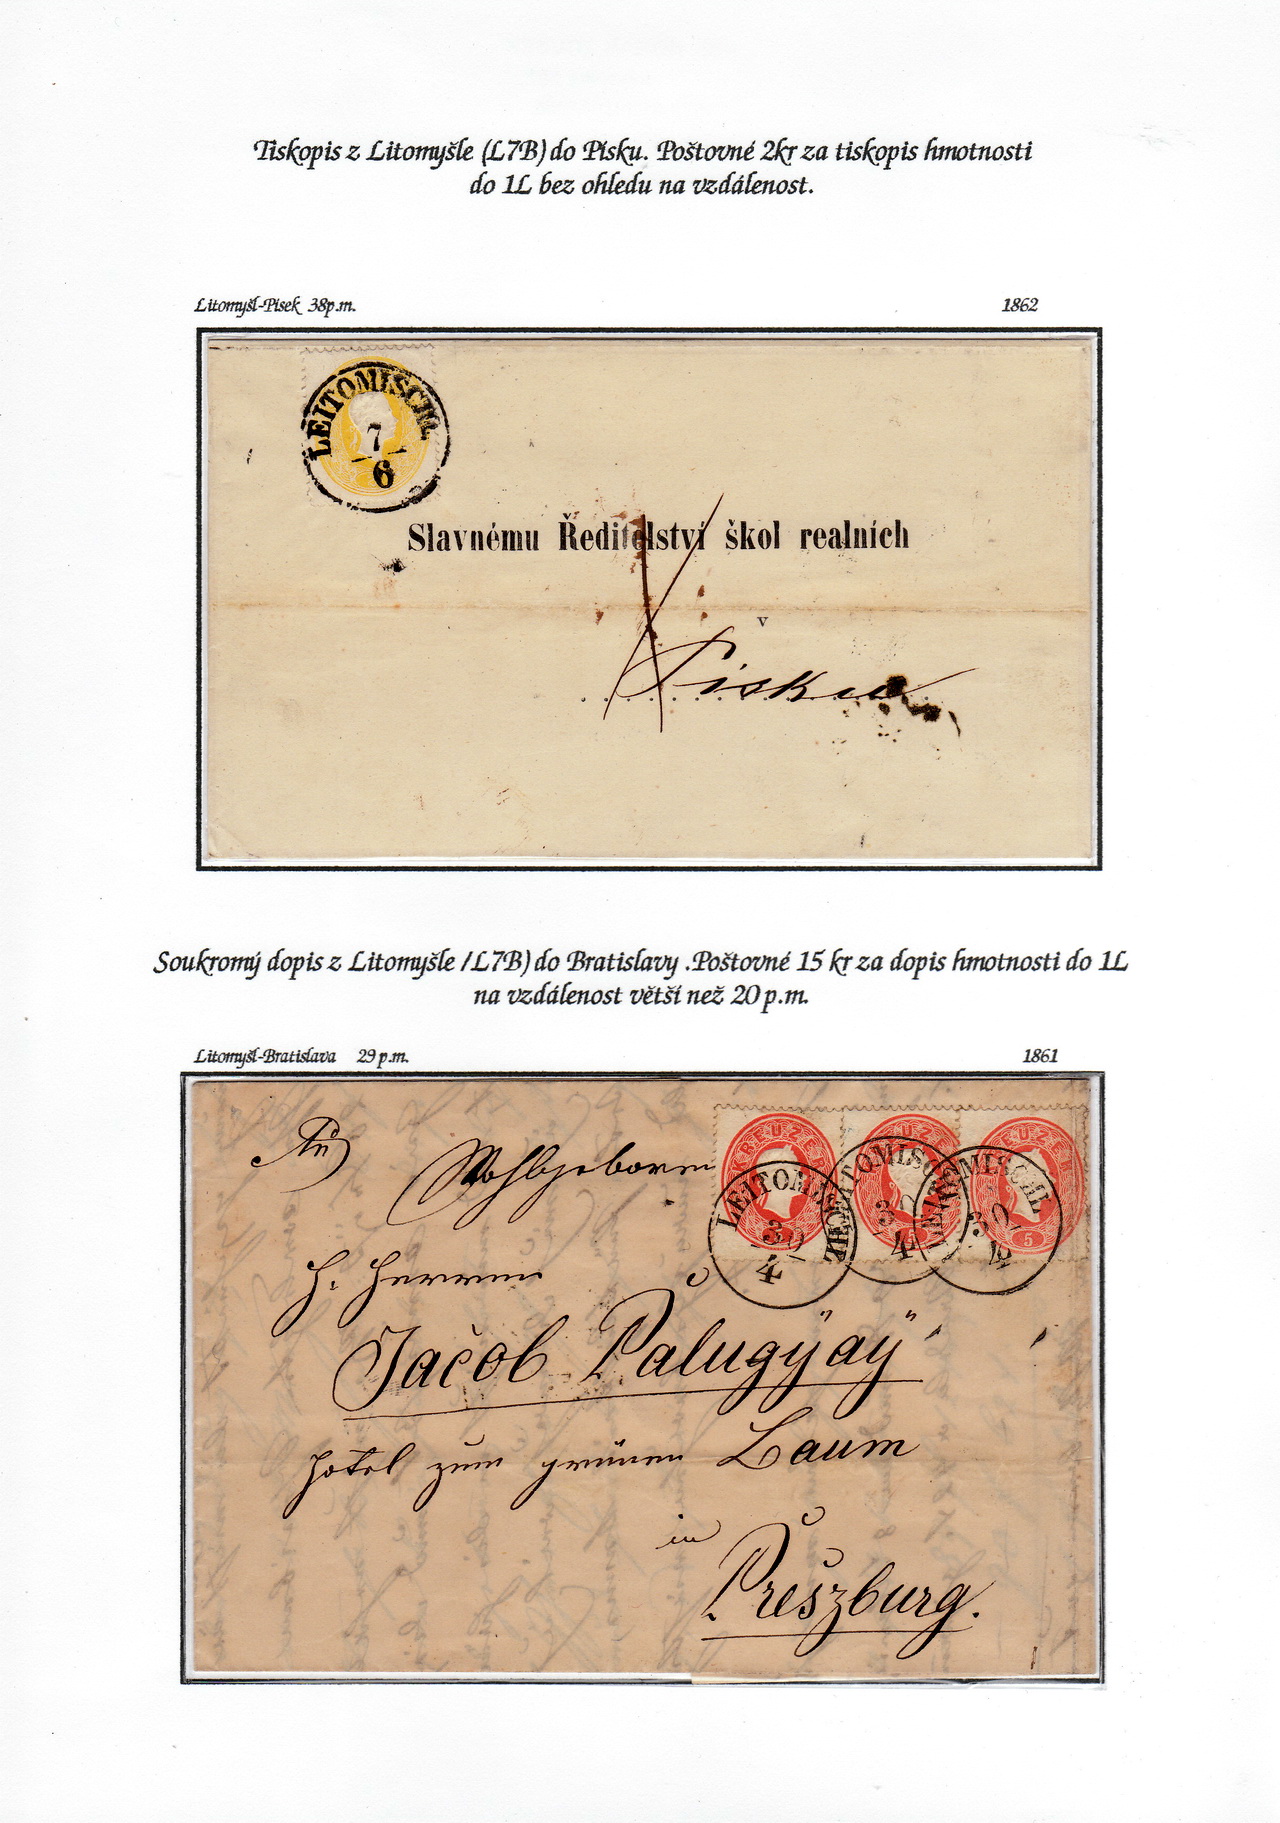 Tiskopis z Litomyšle (L7B) do Písku. Poštovné 2kr za tiskopis hmotnosti
do 1L bez ohledu na vzdálenost.
Litomyšl-Písek 38p.m.
1862
LEITOMISCHL
7
6
Slavnému Ředitelství škol realních
v
Písku
Soukromý dopis z Litomyšle /L7B) do Bratislavy .Poštovné 15 kr za dopis hmotnosti do 1L
na vzdálenost větší než 20 p.m.
Litomyšl-Bratislava 29 p.m.
1861
KREUZER KREUZER KREUZER
5 5
LEITOMISCHL LEITOMISCHL LEITOMISCHL
30 30 30
4 4 4
An
Wohlgeboren
H. Herren
Jacob Palugÿaÿ
Hotel zum grünen Baum
in
Preszburg.